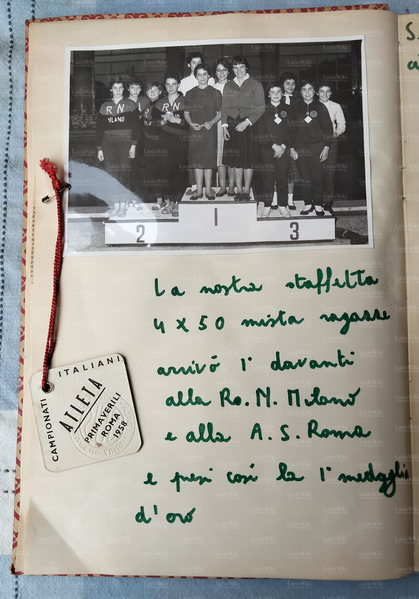 S.
RN
MILANO
RN
2
1
3
La nostra staffetta
4 x 50 mista ragazze
arrivò 1ª davanti
alla Ra. N. Milano
e alla A. S. Roma
e presi così la 1ª medaglia
d'oro
CAMPIONATI ITALIANI
ATLETA
PRIMAVERILI
ROMA
1958